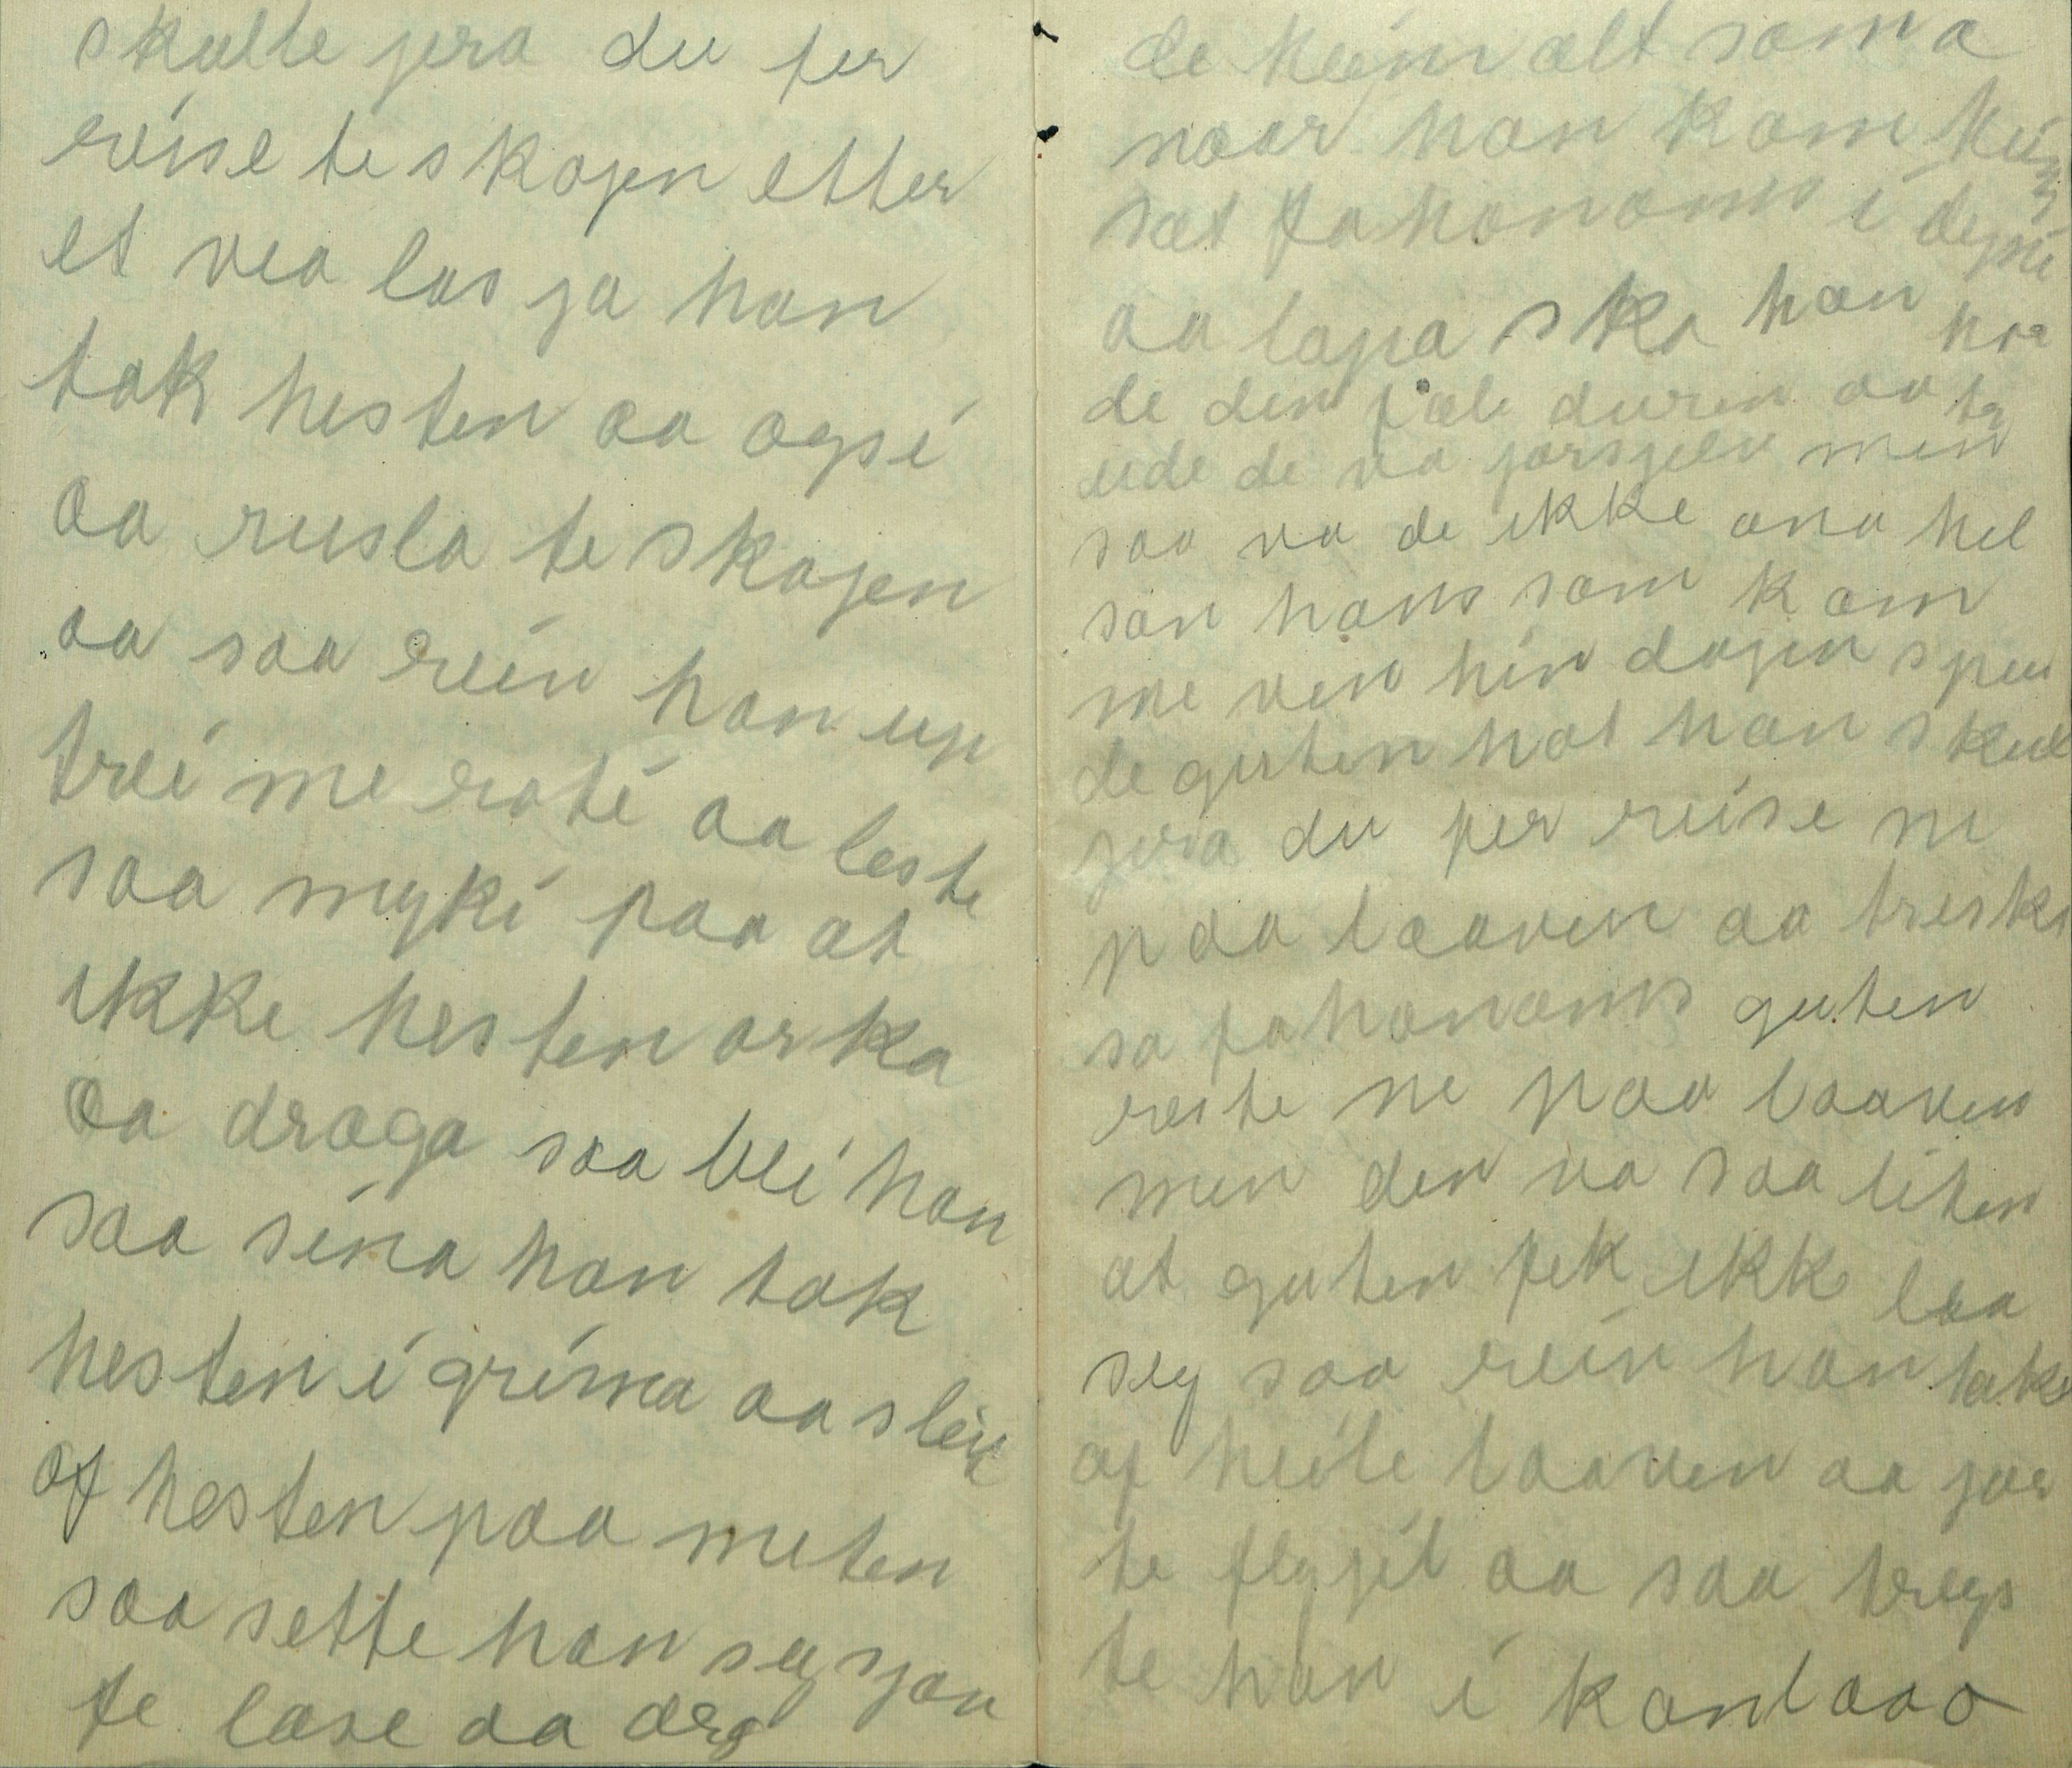 skulle jera du per
reise te skogen etter
et vea las ja han
tok hesten aa ogsi
aa rusla te skogen
aa saa rein han up
trei me roti aa leste
saa myki paa at
ikke hesten orka
aa draga saa blei han
saa sina han tok
hesten i grima aa sleit
of hesten paa miten
saa sette han seg sjøn
te lase aa drog
de heim alt sama
naar han kom heim
sat fahonoms i
aa lapa ska han
de den fæle duren aa
ude de va jorsjelv men
saa va de ikke ana hel
son hans som kom
me ven hin dagen spu
de guten hot han skul
jera du per reise ne
paa laaven aa treske
sa fahonoms guten
reste ne paa laaven
men den va saa liten
at guten fek ikke laa
seg saa rein han take
af heile laaven aa jor
te flygjil aa saa tregs
te han i kanlaao